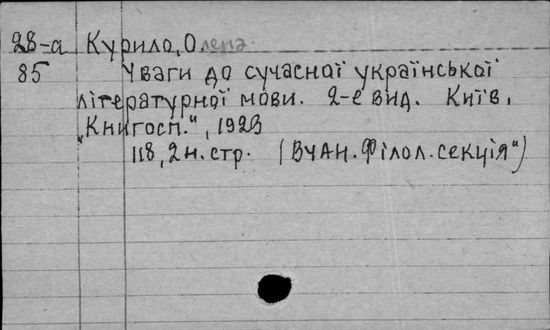 28-а Курило, Олена
85 Уваги до сучасної української
літературної мови. 2-е вид. Київ,
„Книгосп.", 1923
118, 2 н. стр. (ВУАН. Філол. секція")